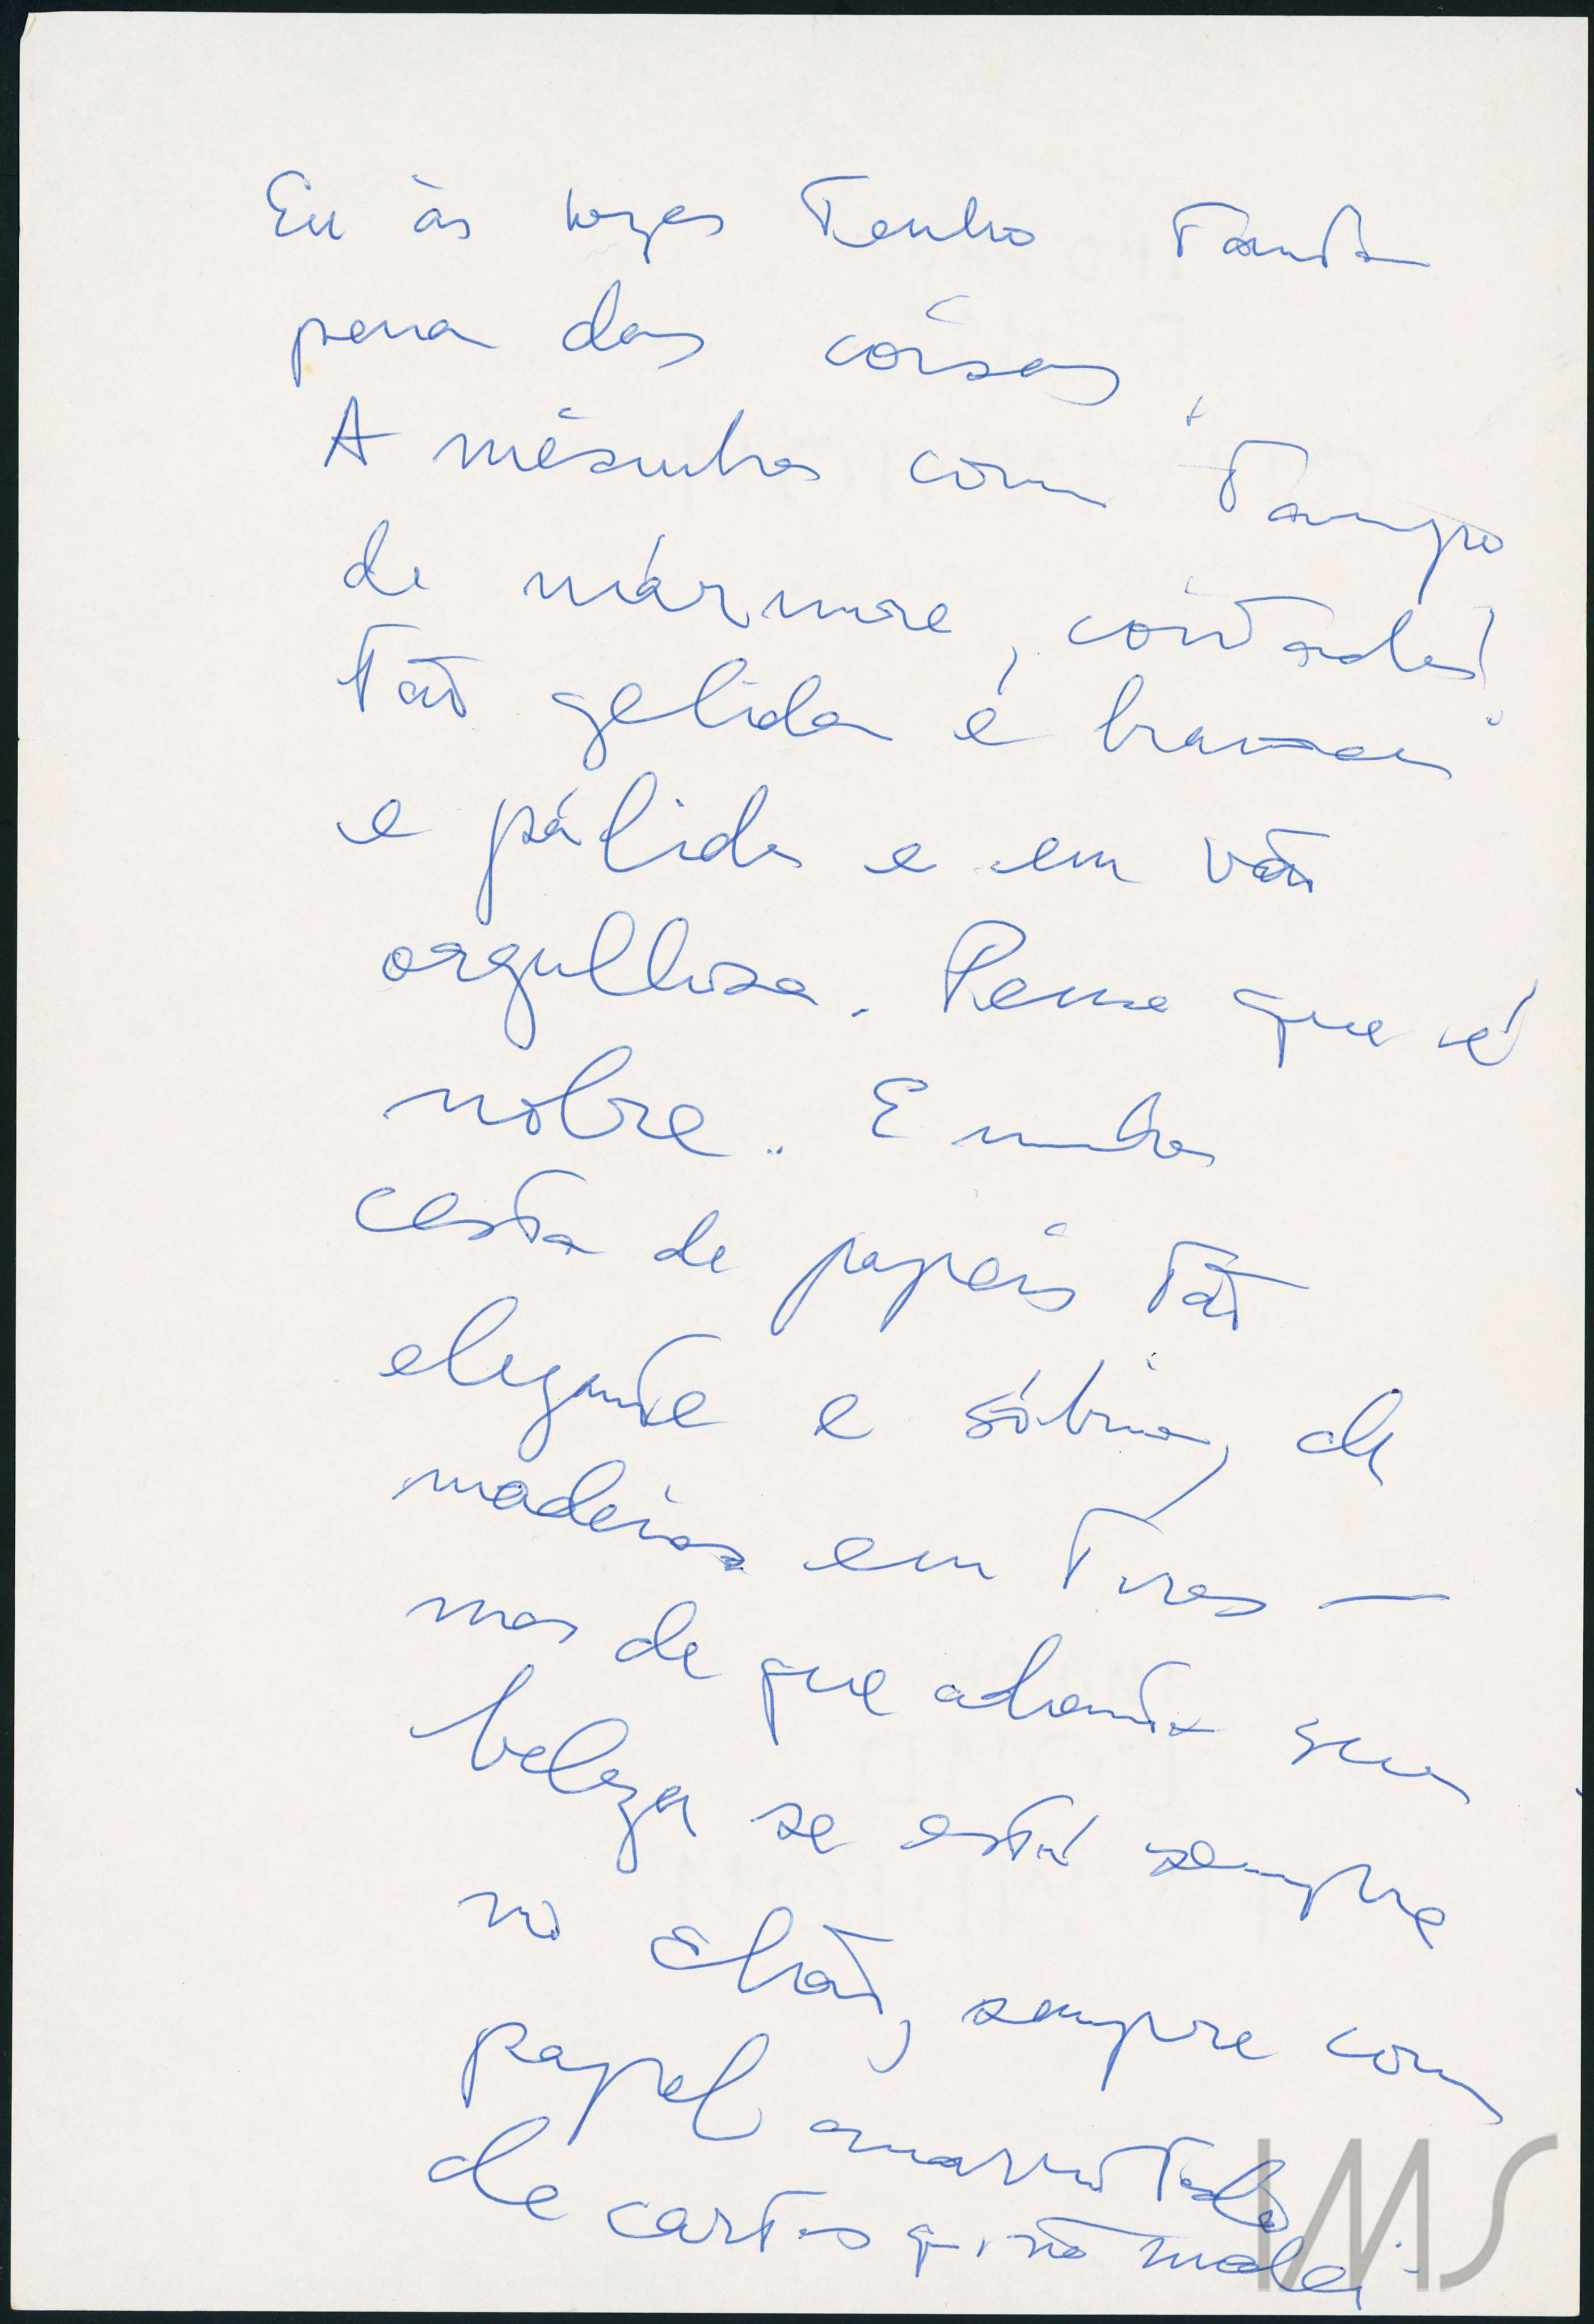 Eu às vezes tenho tanta
pena das coisas.
A mêsinha com tampo
de mármore, coitada!
Tão gelida e branca
e pálida e em vão
orgulhosa. Pensa que é
nobre. E minha
cesta de papéis tão
elegante e sóbria, de
madeira em tiras —
mas de que adianta sua
beleza se está sempre
no chão, sempre com
papel amarrotado
de cartas q. não mandei
IMS